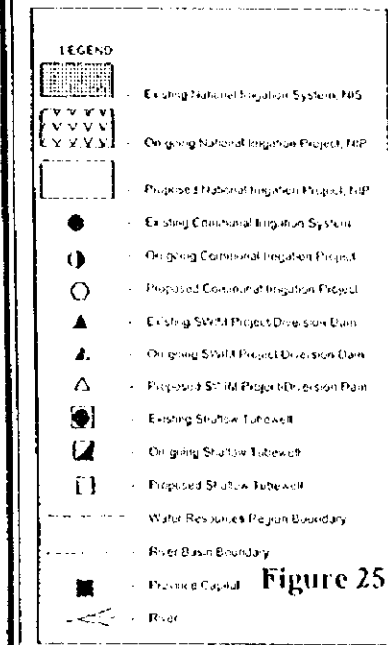 LEGEND
- Existing National Irrigation System, NIS
- On-going National Irrigation Project, NIP
- Proposed National Irrigation Project, NIP
- Existing Communal Irrigation System
- On-going Communal Irrigation Project
- Proposed Communal Irrigation Project
- Existing SWIM Project Diversion Dam
- On-going SWIM Project Diversion Dam
- Proposed SWIM Project Diversion Dam
- Existing Shallow Tubewell
- On-going Shallow Tubewell
- Proposed Shallow Tubewell
- Water Resources Region Boundary
- River Basin Boundary
- Province Capital
Figure 25
- River